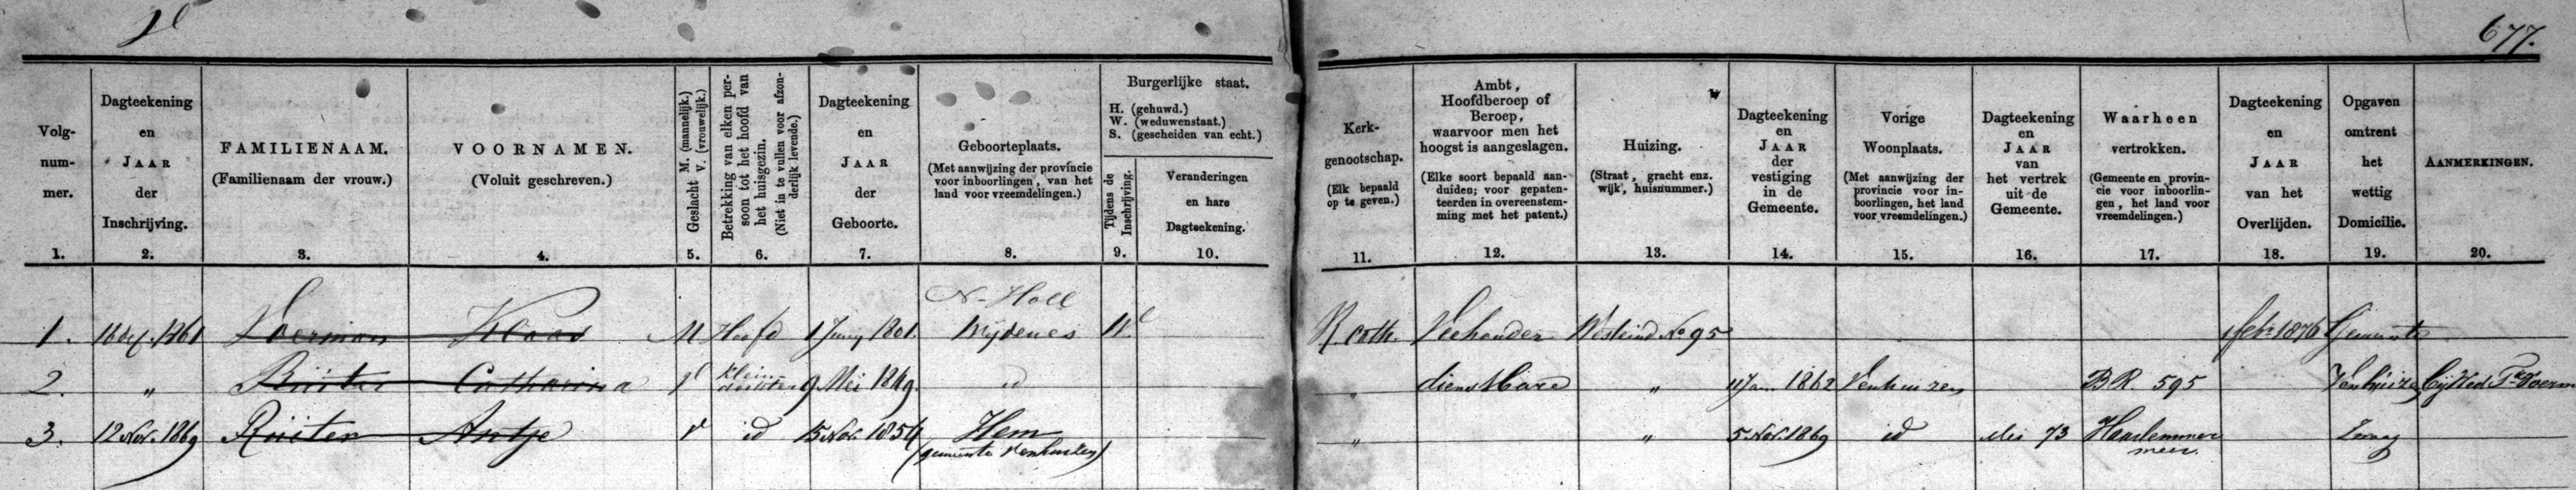 677.
Volg-
num-
mer.
Dagteekening
en
JAAR
der
Inschrijving.
FAMILIENAAM.
(Familienaam der vrouw.)
VOORNAMEN.
(Voluit geschreven.)
Geslacht M. (mannelijk.)
V. (vrouwelijk.)
Betrekking van elken per-
soon tot het hoofd van
het huisgezin.
(Niet in te vullen voor afzon-
derlijk levende.)
Dagteekening
en
JAAR
der
Geboorte.
Geboorteplaats.
(Met aanwijzing der provincie
voor inboorlingen, van het
land voor vreemdelingen.)
Burgerlijke staat.
H. (gehuwd.)
W. (weduwenstaat.)
S. (gescheiden van echt.)
Tijdens de
Inschrijving.
Veranderingen
en hare
Dagteekening.
Kerk-
genootschap.
(Elk bepaald
op te geven.)
Ambt,
Hoofdberoep of
Beroep,
waarvoor men het
hoogst is aangeslagen.
(Elke soort bepaald aan-
duiden; voor gepaten-
teerden in overeenstem-
ming met het patent.)
Huizing.
(Straat, gracht enz.
wijk, huisnummer.)
Dagteekening
en
JAAR
der
vestiging
in de
Gemeente.
Vorige
Woonplaats.
(Met aanwijzing der
provincie voor in-
boorlingen, het land
voor vreemdelingen.)
Dagteekening
en
JAAR
van
het vertrek
uit de
Gemeente.
Waarheen
vertrokken.
(Gemeente en provin-
cie voor inboorlin-
gen, het land voor
vreemdelingen.)
Dagteekening
en
JAAR
van het
Overlijden.
Opgaven
omtrent
het
wettig
Domicilie.
AANMERKINGEN.
1. 2. 3. 4. 5. 6. 7. 8. 9. 10. 11. 12. 13. 14. 15. 16. 17. 18. 19. 20.
N-Holl
1. 1861 Voerman Klaas M Hoofd 1 Juny 1801. Wijdenes W R. cath. Veehouder Westeind No 95 1 feb 1876 Gemeente
2. " Ruiter Catharina V klein dochter 9 Mei 1849. id " dienstbare " 11 Jan. 1862 Venhuizen BR 595 Venhuizen bij Wed. Voerm
3. 12 Nov. 1869 Ruiter Antje V id 15 Nov. 1854 Hem " " 5 Nov. 1869 id Mei 73 Haarlemmer Zwaag
(gemeente Venhuizen) meer.